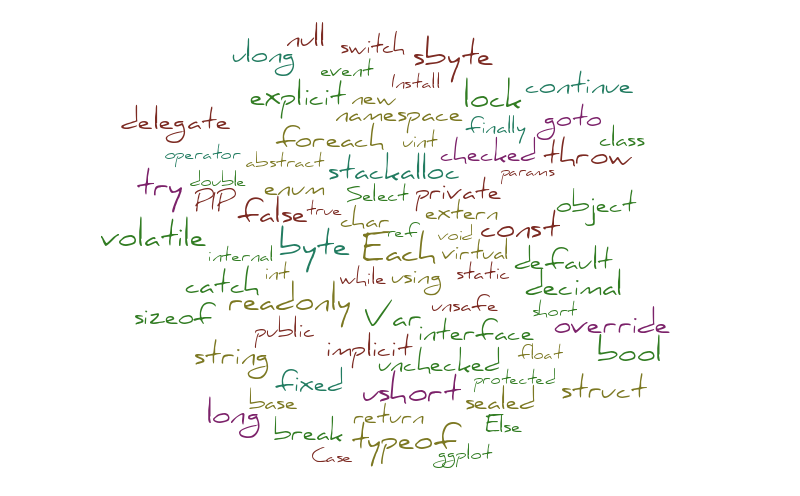 null
switch
ulong
sbyte
event
Install
explicit
new
lock
continue
namespace
delegate
finally
goto
foreach
uint
class
operator
abstract
checked
throw
stackalloc
params
try
double
enum
Select
private
PIP
false
true
char
extern
object
ref
void
const
volatile
internal
byte
Each
virtual
default
catch
int
while
using
static
decimal
readonly
unsafe
short
sizeof
Var
public
interface
override
string
implicit
unchecked
float
bool
fixed
protected
ushort
struct
base
sealed
long
return
break
typeof
Else
Case
ggplot